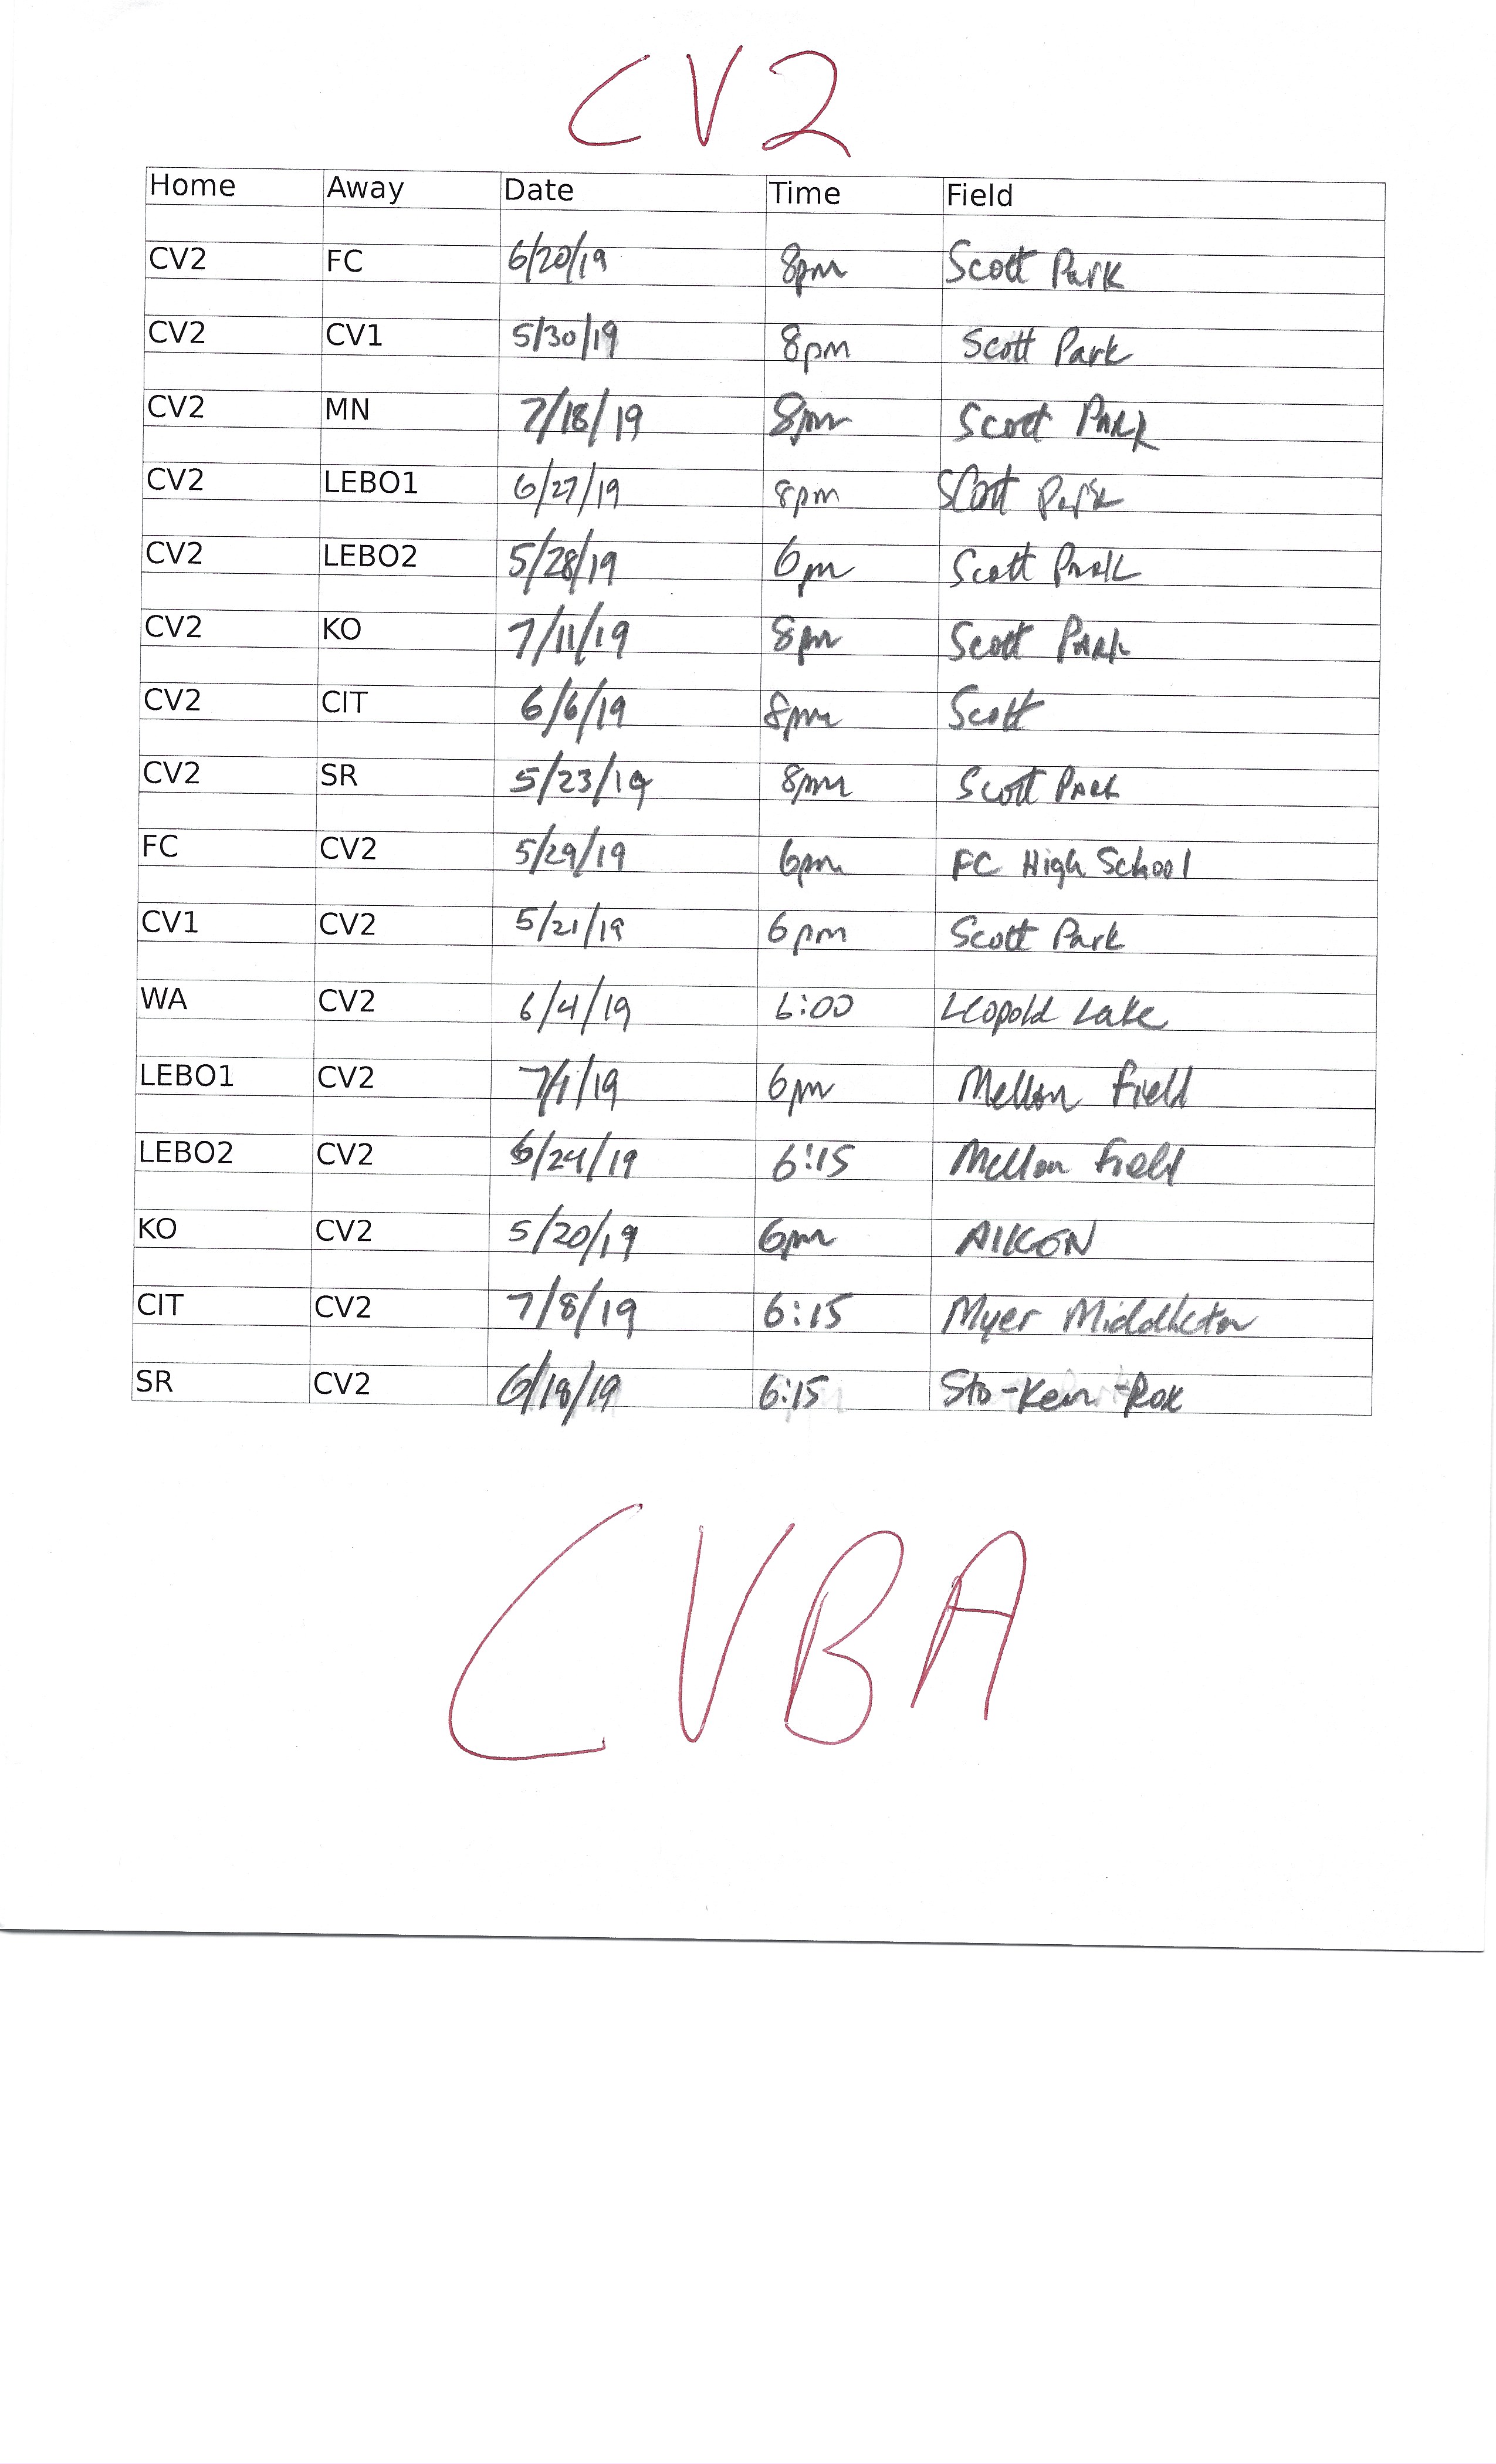 CV2
Home Away Date Time Field
CV2 FC 6/20/19 8pm Scott Park
CV2 CV1 5/30/19 8pm Scott Park
CV2 MN 7/18/19 8pm Scott PARK
CV2 LEBO1 6/27/19 8pm Scott Park
CV2 LEBO2 5/28/19 6pm Scott Park
CV2 KO 7/11/19 8pm Scott PARK
CV2 CIT 6/6/19 8pm Scott
CV2 SR 5/23/19 8pm Scott PARK
FC CV2 5/29/19 6pm FC High School
CV1 CV2 5/21/19 6pm Scott Park
WA CV2 6/4/19 6:00 Leopold Lake
LEBO1 CV2 7/1/19 6pm Mellon Field
LEBO2 CV2 6/24/19 6:15 Mellon Field
KO CV2 5/20/19 6pm
CIT CV2 7/8/19 6:15 Myer
SR CV2 6/18/19 6:15 Sto-Ken-Rox
CVBA